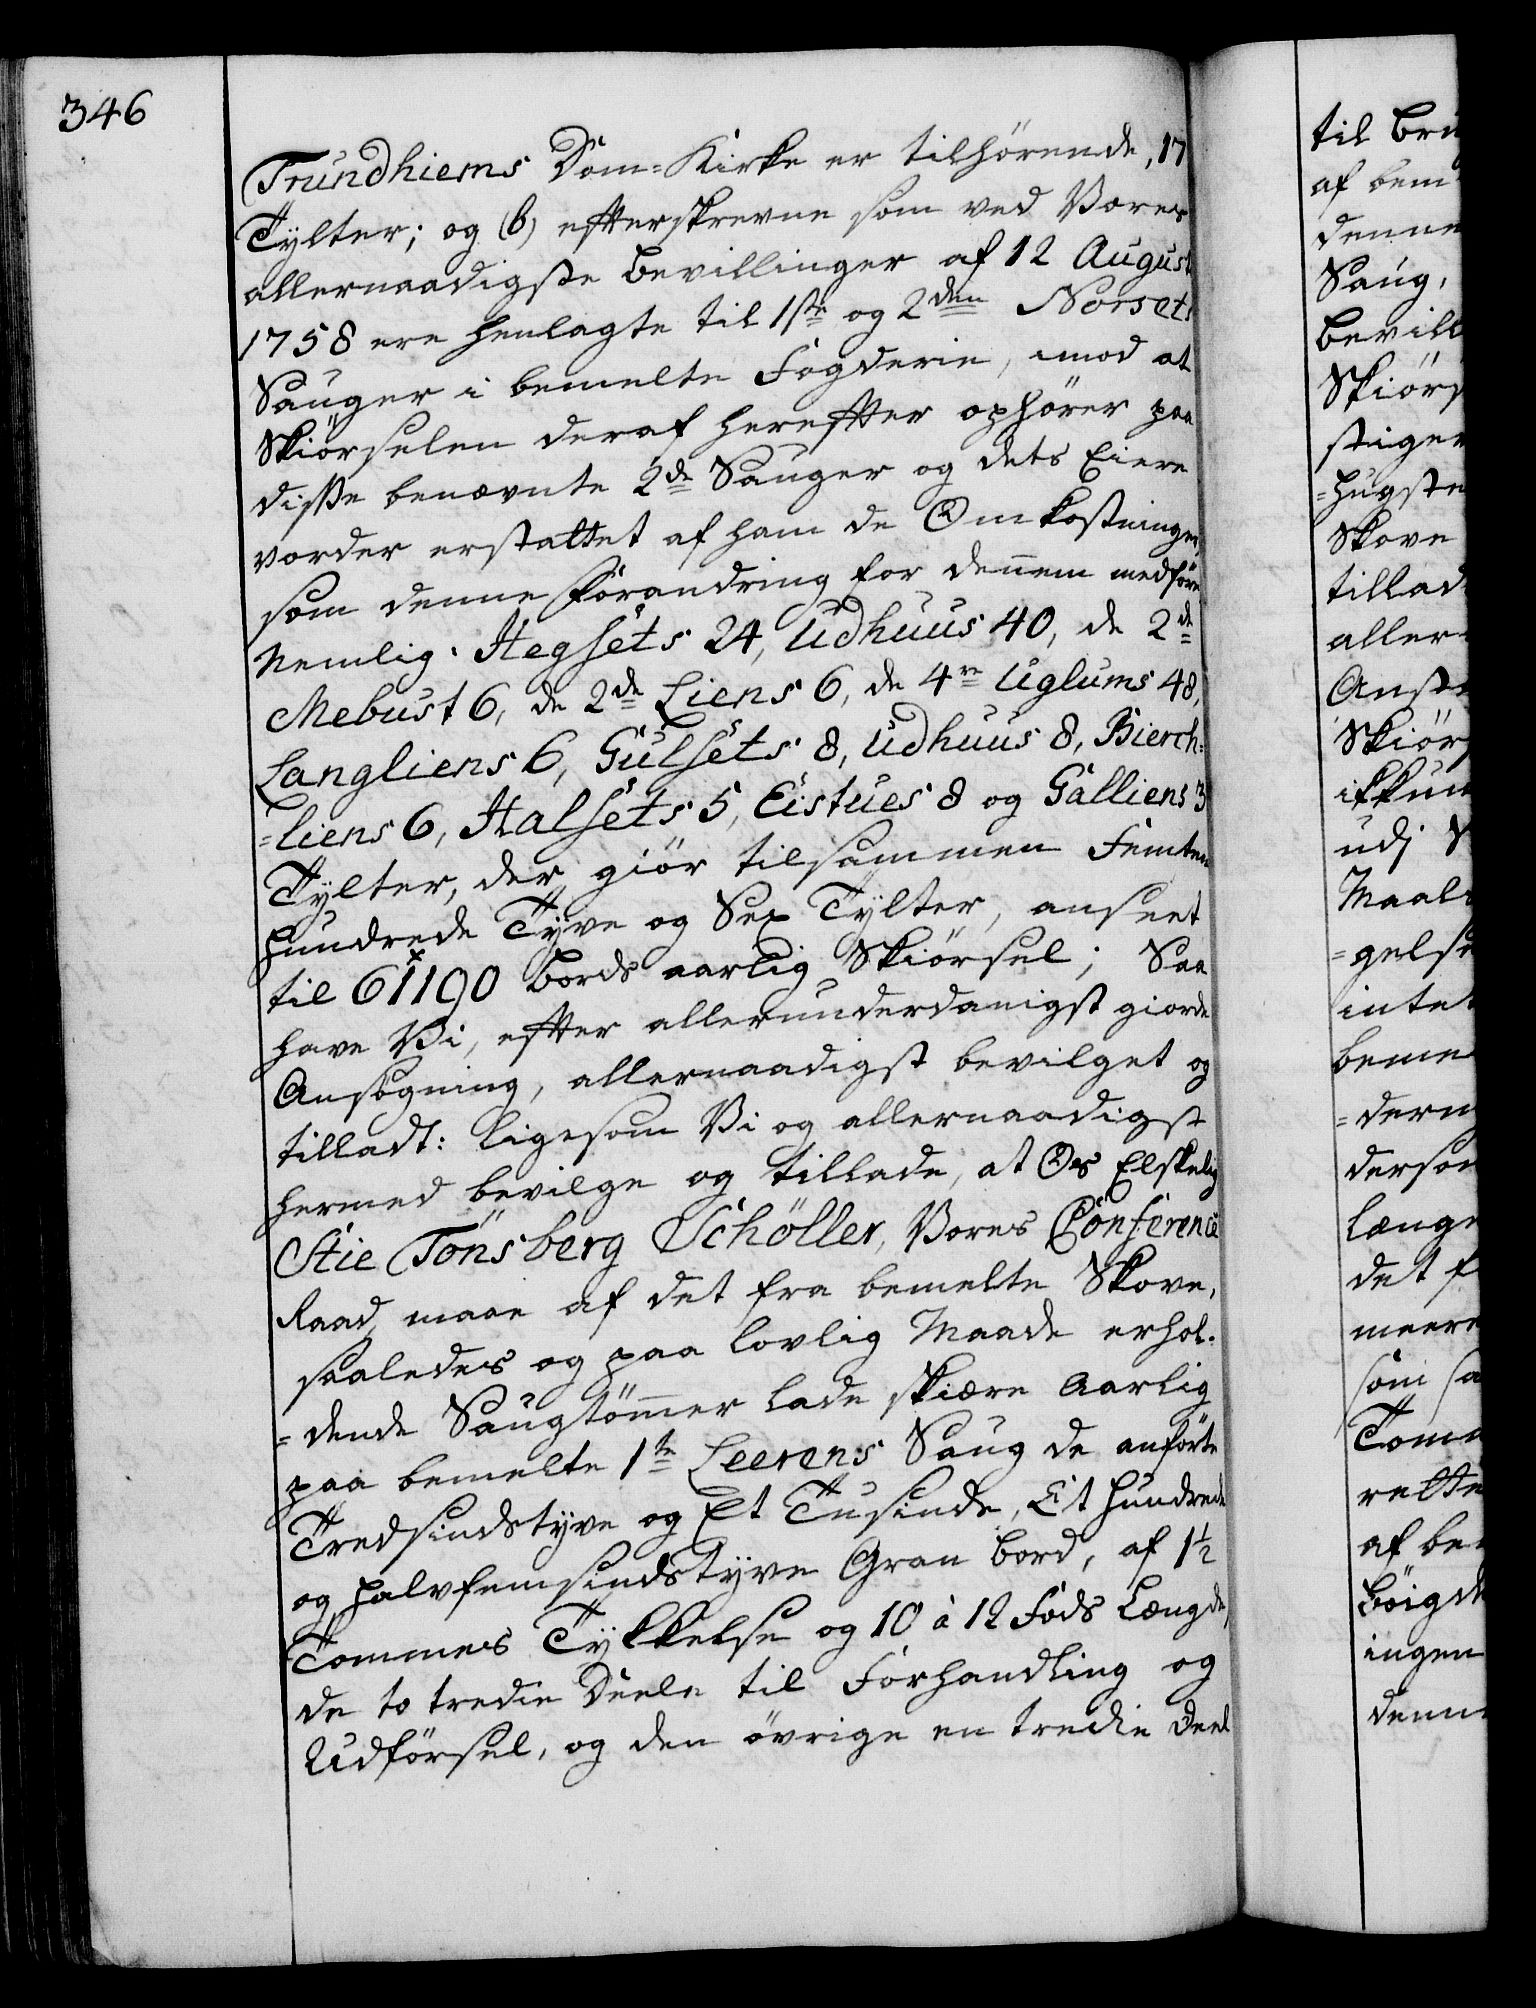 346
Trundhiems Dom-Kirke er tilhørende, 17
Tylter; og (b) efterskrevne som ved Vores
allernaadigste Bevillinger af 12 August
1758 ere henlagte til 1ste og 2den Norsets
Sauger i bemelte Fogderie, imod at
Skiørselen deraf herefter ophører paa
disse benævnte 2de Sauger og dets Eiere
vorder erstattet af ham de Omkostninger,
som denne Forandring for dennem medføre
nemlig. Hegsets 24, Udhuus 40, de 2de
Mebust 6, de 2de Liens 6, de 4re Uglums 48,
Langliens 6, Gulsets 8, Udhuus 8, Bierch=
=liens 6, Halsets 5, Eistues 8 og Galliens 3
Tylter, der giør tilsammen Femten
hundrede Tyve og Sex Tylter, anseet
til 61190 Bords aarlig Skiørsel; Saa
have Vi, efter allerunderdanigst giorde
Ansøgning, allernaadigst bevilget og
tilladt: ligesom Vi og allernaadigst
hermed bevilge og tillade, at Os Elskelig
Stie Tönsberg Schöller, Vores Conference
Raad, maae af det fra bemelte Skove,
saaledes og paa lovlig Maade erhol-
=dende Saugtømmer lade skiære Aarlig
paa bemelte 1te Leerens Saug de anførte
Tredsindstyve og Et Tusinde, Eit hundrede
og halvfemsindstyve Gran Bord, af 1½
Tommes Tykkelse og 10 à 12 Fods Længde,
de to tredie Deele til Forhandling og
Udførsel, og den øvrige en tredie Deel
til Bru
af bem
denne
Saug,
Bevill
Skiørs
stiger
=hugste
Skove
tillad
aller-
Skiørs
udj
Maal
=gelse
intet
beme
=dern
derson
længe
det f
meere
som sa
Tomm
rette
af be
Böigde
ingen
denn